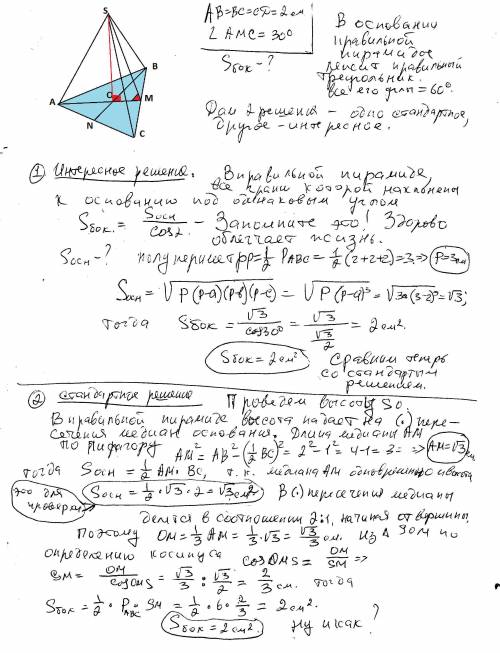 S
B
A
O
M
N
C
AB=BC=CD=2см
∠AMC=30°
Sбок-?
В основании
правильной
пирамиды
лежит правильный
треугольник.
Все его углы=60°
Дам 2 решения - одно стандартное,
другое - интересное.
① Интересное решение. В правильной пирамиде,
все грани которой наклонены
к основанию под одинаковым углом
Sбок. = Sосн/cosα - Запомните это! Здорово
облегчает жизнь.
Sосн-? полупериметр p=½ P_ABC = ½(2+2+2)=3 => p=3см
Sосн = √P(p-a)(p-b)(p-c) = √P(p-a)³ = √3(3-2)³ = √3;
тогда Sбок = √3/cos30° = √3/(√3/2) = 2см².
Sбок=2см² Сравним теперь
со стандартным
решением.
② стандартное решение Проведем высоту SO.
В правильной пирамиде высота падает на (·) пере-
сечения медиан основания. Длина медианы AM
по Пифагору AM²=AB²-(½BC)²=2²-1²=4-1=3 => AM=√3см
тогда Sосн=½ AM·BC, т.к. медиана AM одновременно и высота
это для проверки Sосн=½·√3·2=√3см² В (·) пересечения медианы
делятся в соотношении 2:1, начиная от вершины.
Поэтому OM=⅓AM=⅓·√3=√3/3 см. Из Δ SOM по
определению косинуса cosOMS = OM/SM =>
SM = OM/cosOMS = √3/3 : √3/2 = 2/3 см. тогда
Sбок=½·P_ABC·SM=½·6·2/3=2см².
Sбок=2см². Ну и как?